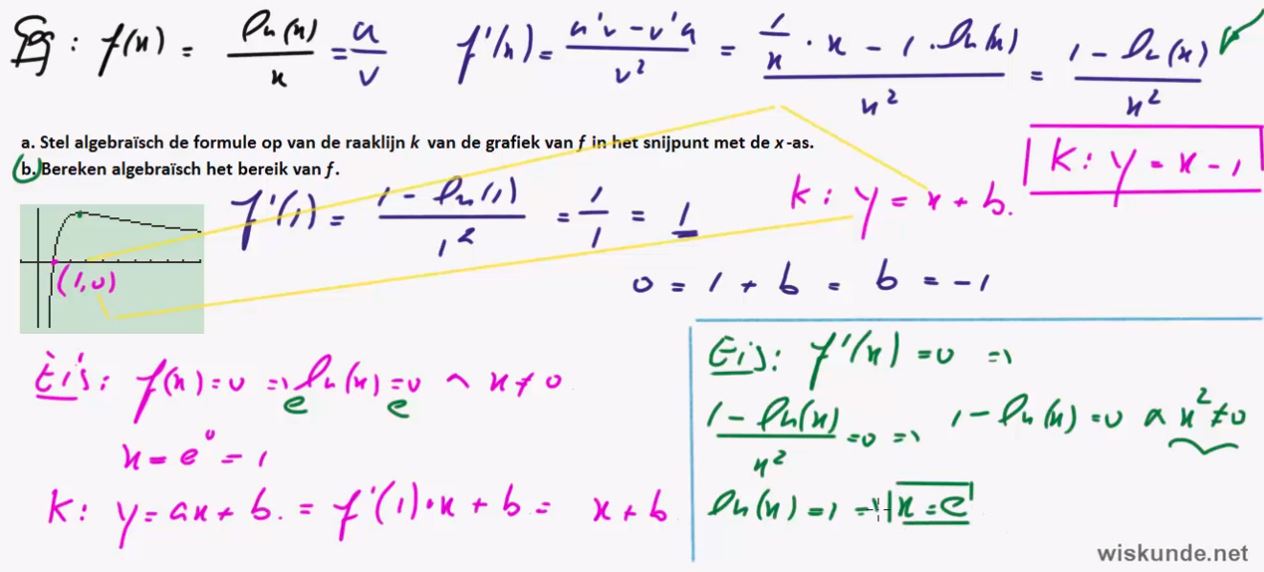 Geg: f(x) = ln(x)/x = u/v   f'(x) = u'v - v'u / v² = 1/x · x - 1 · ln(x) / x² = 1 - ln(x) / x²
a. Stel algebraïsch de formule op van de raaklijn k van de grafiek van f in het snijpunt met de x-as.
b. Bereken algebraïsch het bereik van f.
k: y = x - 1
f'(1) = 1 - ln(1) / 1² = 1/1 = 1
k: y = x + b.
(1,0)
0 = 1 + b = b = -1
Eis: f(x) = 0 => ln(x) = 0 ∧ x ≠ 0
e e
x = e⁰ = 1
k: y = ax + b. = f'(1)·x + b = x + b
Eis: f'(x) = 0 =>
1 - ln(x) / x² = 0 => 1 - ln(x) = 0 ∧ x² ≠ 0
ln(x) = 1 => x = e¹
wiskunde.net